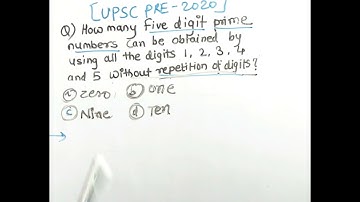 [UPSC PRE-2020]
Q) How many five digit prime
numbers can be obtained by
using all the digits 1, 2, 3, 4
and 5 without repetition of digits?
(a) Zero (b) One
(c) Nine (d) Ten